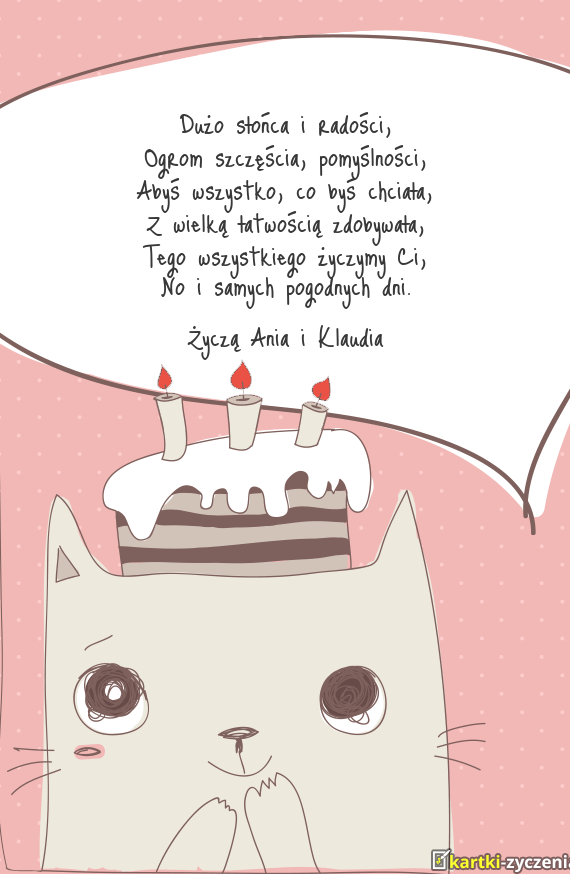 Dużo słońca i radości,
Ogrom szczęścia, pomyślności,
Abyś wszystko, co byś chciała,
Z wielką łatwością zdobywała,
Tego wszystkiego życzymy Ci,
No i samych pogodnych dni.
Życzą Ania i Klaudia
kartki-zyczenia